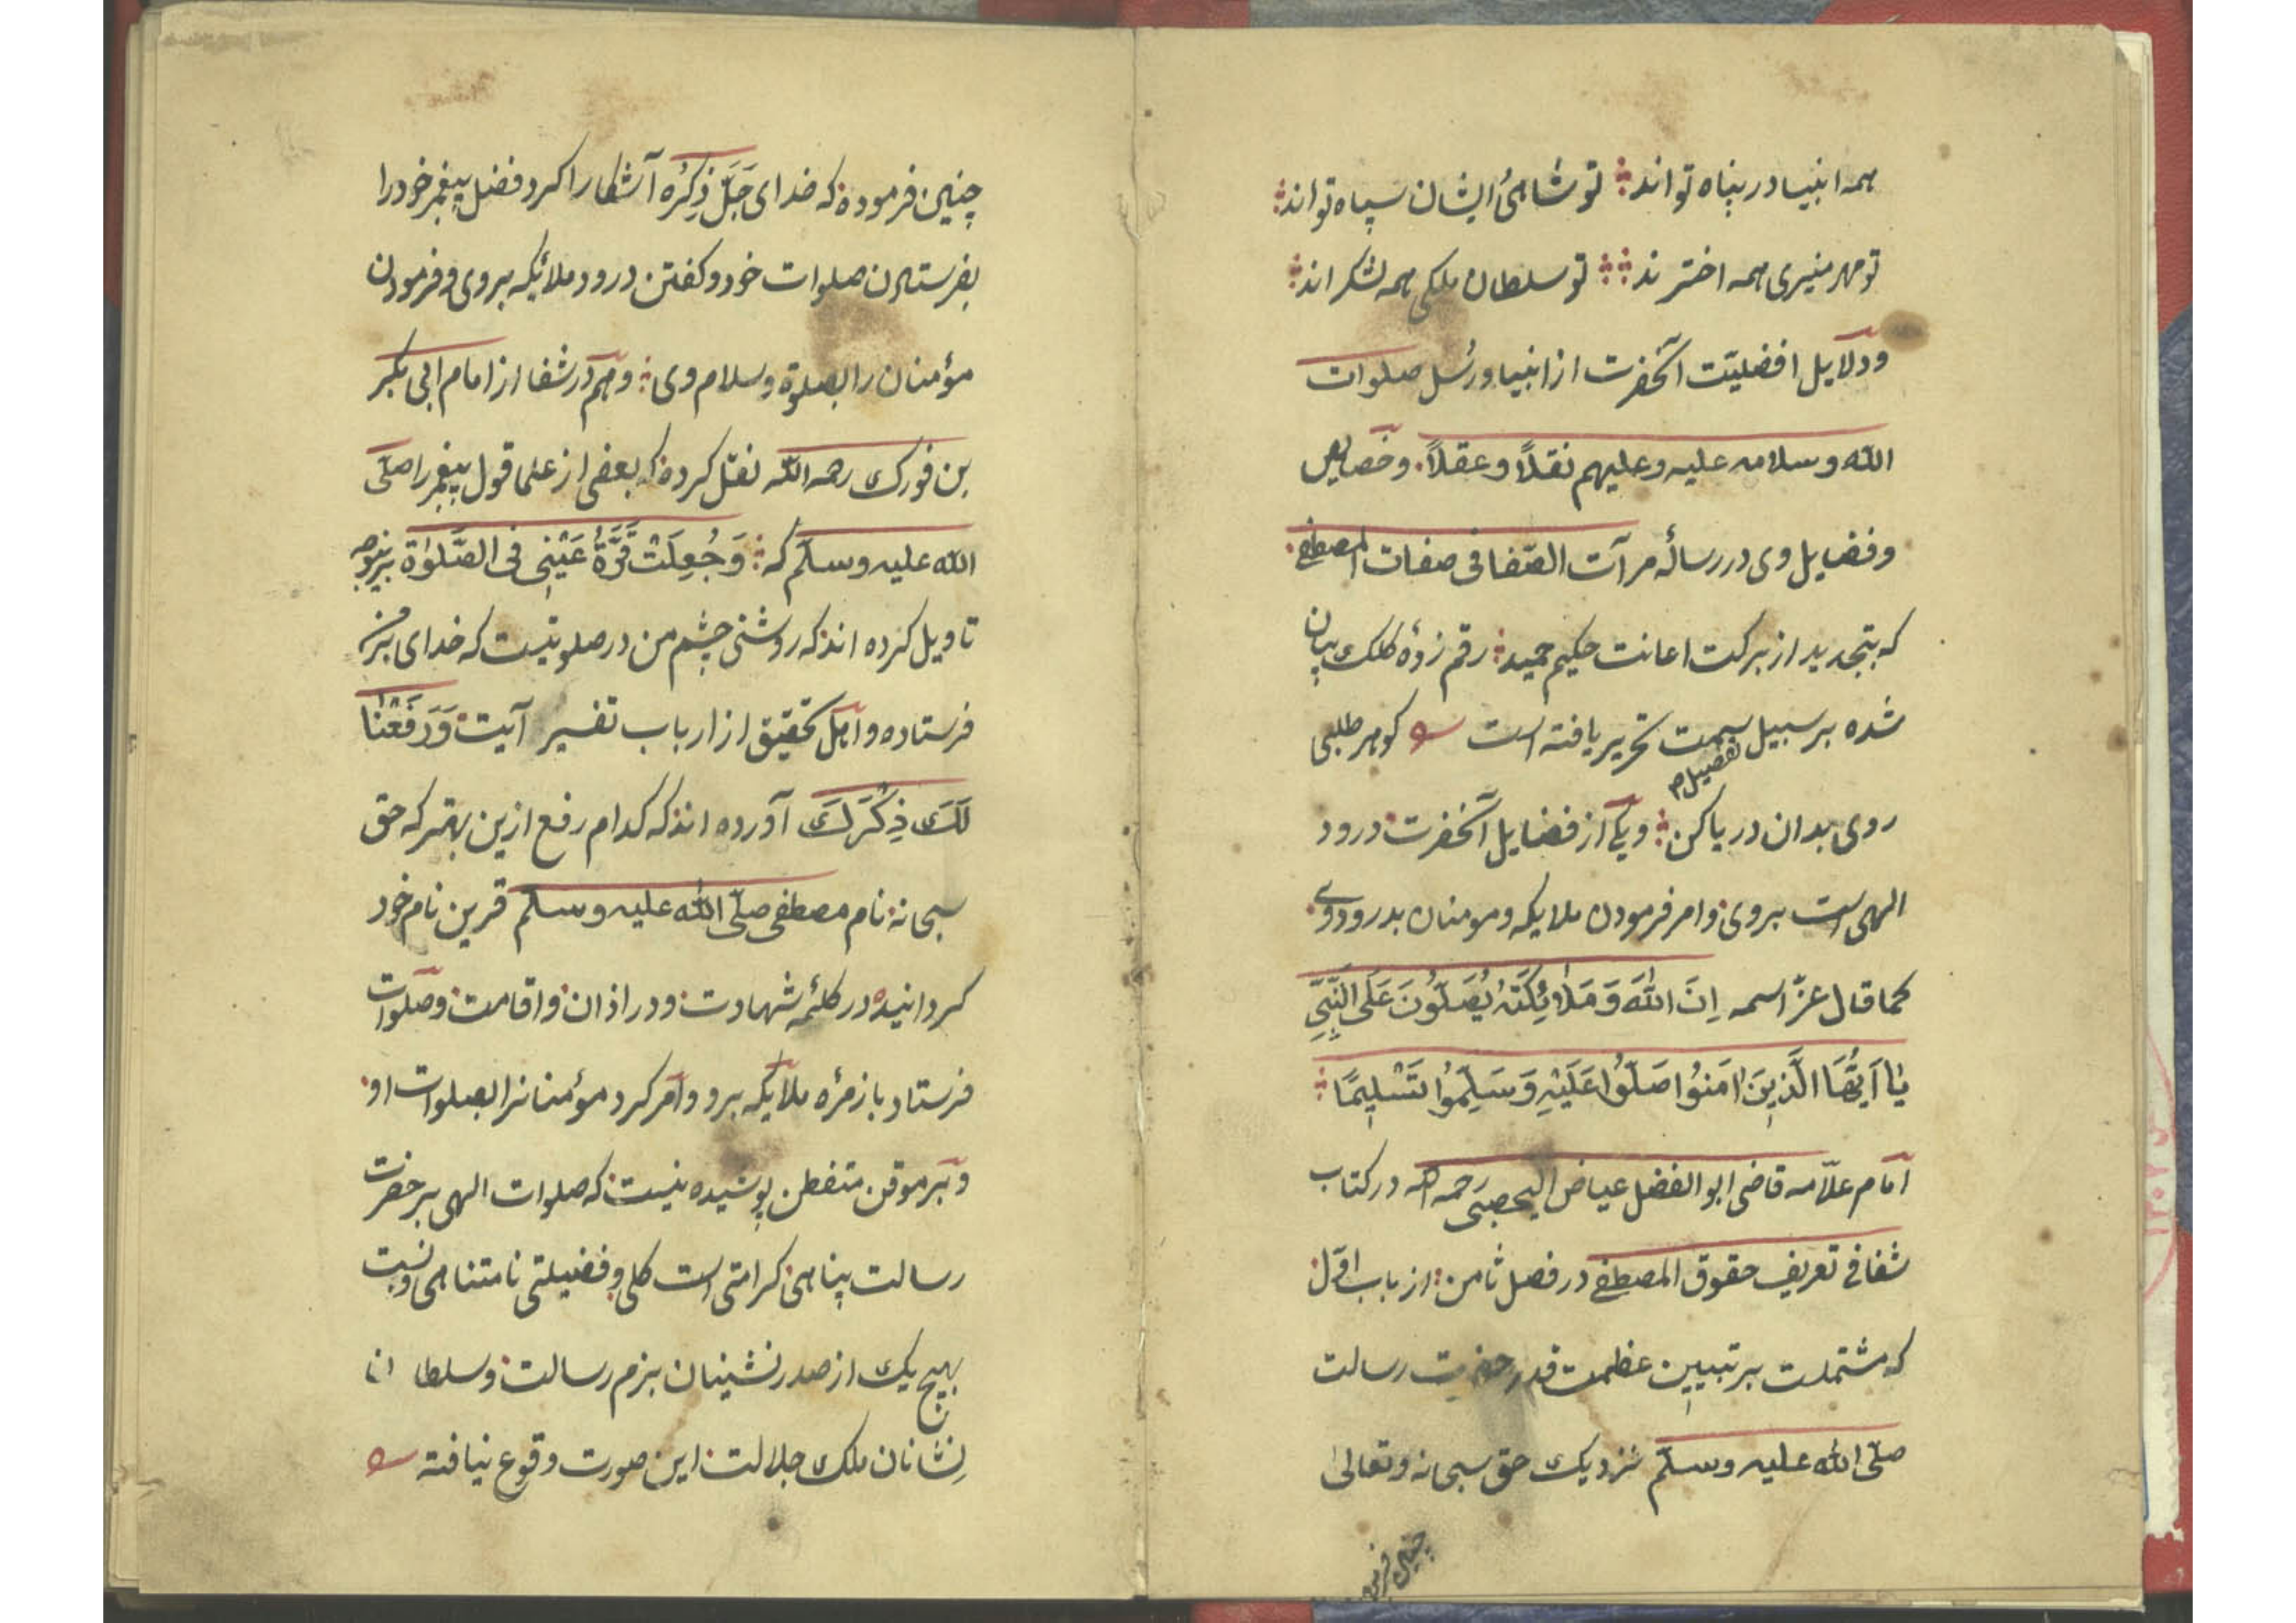 همه انبیا در پناه تواند ؞ تو شاهیٔ ایشان سپاه تواند ؞
تو مهر منیری همه اخترند ؞ ؞ تو سلطان ملکی همه لشکراند ؞
ودلایل افضلیّت آنحضرت از انبیا ورُسل صلوات
الله وسلامه علیه وعلیهم نقلاً وعقلاً وخصایص
وفضایل وی در رسالهٔ مرآت الصّفا فی صفات المصطفی
که بتجدید از برکت اعانت حکیم حمید ؞ رقم زدهٔ کلک بیان
شده بر سبیل تفصیل سمت تحریر یافته است کوهر طلبی
روی بدان دریا کن ؞ ویکی از فضایل آنحضرت درود
الهی است بروی وامر فرمودن ملایکه ومومنان بدرود وی
کما قال عزّ اسمه اِنَّ اللّٰهَ وَمَلٰٓئِکَتَهُ یُصَلُّونَ عَلَی النَّبِیِّ
یٰا اَیُّهَا الَّذِینَ اٰمَنُوا صَلُّوا عَلَیْهِ وَسَلِّمُوا تَسْلِیمًا ؞
امام علاّمه قاضی ابو الفضل عیاض الیحصبی رحمه الله در کتاب
شفا فی تعریف حقوق المصطفی در فصل ثامن از باب اوّل
که مشتملست بر تبیین عظمت قدر حضرت رسالت
صلّی الله علیه وسلّم نزدیک حق سبحانه وتعالی
چنین فرموده
چنین فرموده که خدای جَلَّ ذِکْرُه آشکارا کرد فضل پیغمبر خود را
بفرستادن صلوات خود وکفتن درود ملائیکه بروی وفرمودن
مؤمنان را بصلوة وسلام وی ؞ وهم در شفا از امام ابی بکر
بن فورک رحمه الله نقل کرده که بعضی از علما قول پیغمبر را صلّی
الله علیه وسلّم که ؞ وَجُعِلَتْ قُرَّةُ عَیْنِی فی الصَّلوٰة برینوجه
تاویل کرده اند که روشنی چشم من در صلوتیست که خدای بر من
فرستاده واهل تحقیق از ارباب تفسیر آیت وَرَفَعْنٰا
لَکَ ذِکْرَکَ آورده اند که کدام رفع ازین بهتر که حق
سبحانه نام مصطفی صلّی الله علیه وسلّم قرین نام خود
کردانیده در کلمهٔ شهادت ودر اذان واقامت وصلوات
فرستاد با زمرهٔ ملایکه برو وامر کرد مؤمنانرا بصلوات او
وبر موقن متفطن پوشیده نیست که صلوات الهی بر حضرت
رسالت پناهی کرامتی است کلی وفضیلتی نامتناهی ونسبت
بهیچ یک از صدر نشینان بزم رسالت وسلطان
نشانان ملک جلالت این صورت وقوع نیافته